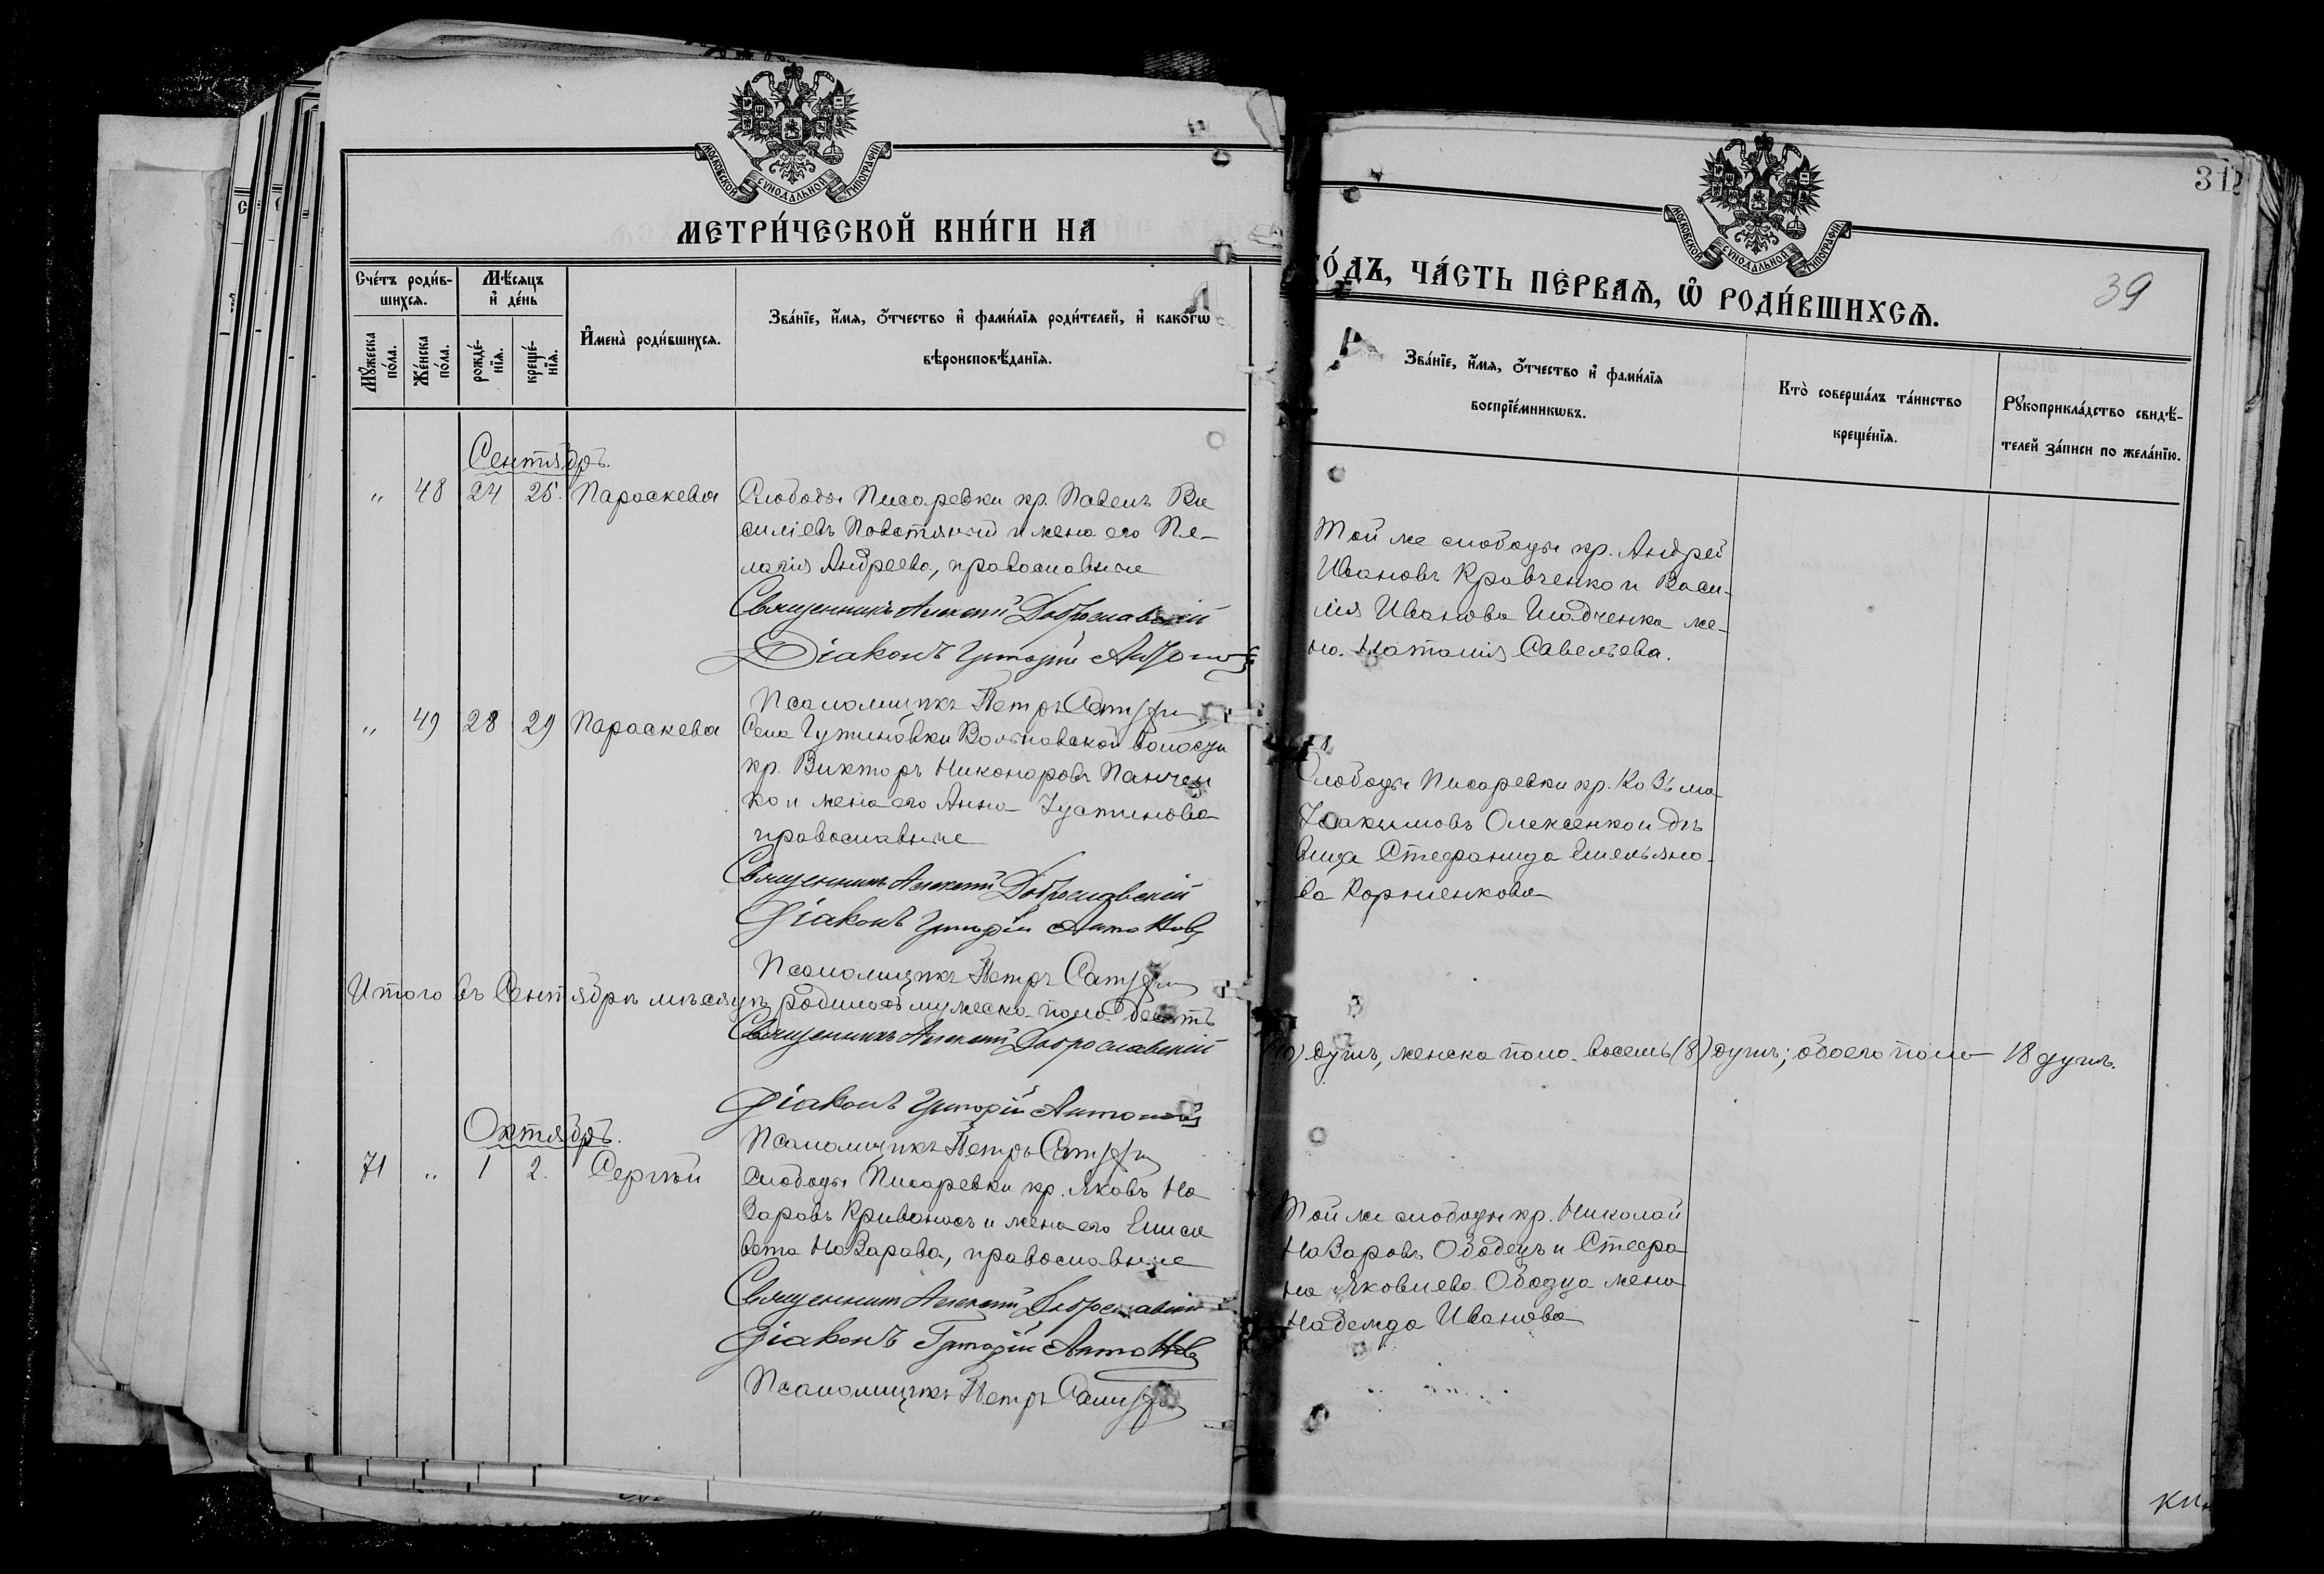 МОСКОВСКОЙ СУНОДАЛЬНОЙ ТИПОГРАФІИ
МЕТРИ́ЧЕСКОЙ КНИ́ГИ НА
Сче́тъ роди́вшихся.
Мѣ́сяцъ и҆ де́нь
Мꙋ́жеска по́ла.
Же́нска по́ла.
рожде́нїя.
креще́нїя.
И҆мена̀ роди́вшихся.
Зва́нїе, и҆́мя, ѻ҆́тчество и҆ фами́лїя роди́телей, и҆ како́гѡ
вѣроисповѣ́данїя.
Сентябрь.
„ 48 24 25. Параскева
Слободы Писаревки кр. Павелъ Ва
силіевъ Повстяный и жена его Пе-
лагія Андреева, православные
Священникъ Алексій Доброславскій
Діаконъ Григорій Антоновъ
Псаломщикъ Петръ
„ 49 28 29 Параскева
Села Гутиновки Вольновской волости
кр. Викторъ Никоноровъ Панчен
ко и жена его Анна Іустинова
православные
Священникъ Алексій Доброславскій
Діаконъ Григорій Антоновъ
Псаломщикъ Петръ
Итого въ Сентябрѣ мѣсяцѣ родилось мужеска пола десять
Священникъ Алексій Доброславскій
Діаконъ Григорій Антоновъ
Октябрь.
Псаломщикъ Петръ
71 „ 1 2. Сергѣй
Слободы Писаревки кр. Яковъ На
заровъ Кривоносъ и жена его Елиса
вета Назарова, православные
Священникъ Алексій Доброславскій
Діаконъ Григорій Антоновъ
Псаломщикъ Петръ
МОСКОВСКОЙ СУНОДАЛЬНОЙ ТИПОГРАФІИ
312
39
ГО́ДЪ, ЧА́СТЬ ПЕ́РВАЯ, Ѡ҆ РОДИ́ВШИХСЯ.
Зва́нїе, и҆́мя, ѻ҆́тчество и҆ фами́лїя
воспрїе́мникѡвъ.
Кто̀ соверша́лъ та́инство
креще́нїя.
Рꙋкоприкла́дство свидѣ́-
телей за́писи по жела́нїю.
Той же слободы кр. Андрей
Ивановъ Кравченко и Васи-
лія Иванова жe-
на Наталія Савельева.
Слободы Писаревки кр. Козьма
Іоакимовъ Олексенко и дѣ
вица Стефанида Емельяно-
ва Корніенкова
(10) душъ, женска пола восемь (8) душъ; обоего пола 18 душъ.
Той же слободы кр. Николай
Назаровъ Ободецъ и Стефа
на Яковлева Ободца жена
Надежда Иванова